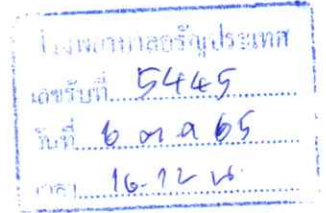 โรงพยาบาลอรัญประเทศ
เลขรับที่ 5445
วันที่ 6 ต.ค 65
เวลา 16.12 น.